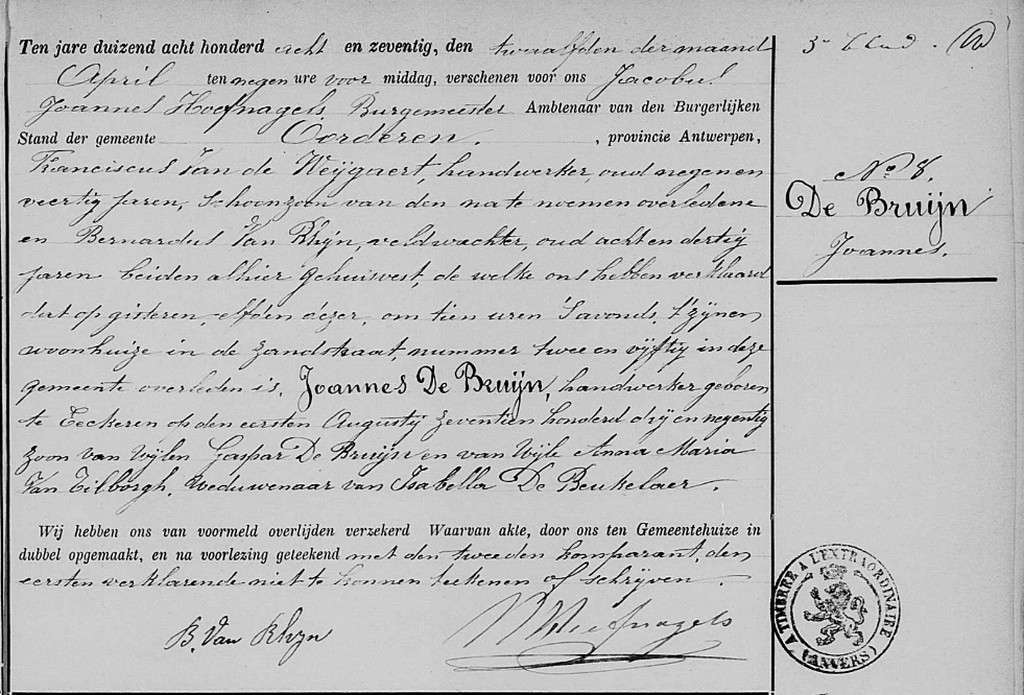 Ten jare duizend acht honderd acht en zeventig, den twaalfden der maand
April ten negen ure voor middag, verschenen voor ons Jacobus
Joannes Hoefnagels, Burgemeester Ambtenaar van den Burgerlijken
Stand der gemeente Oorderen. , provincie Antwerpen,
Franciscus Van de Weijgaert, handwerker, oud negen en
veertig jaren, Schoonzoon van den na te noemen overledene
en Bernardus Van Rhijn, veldwachter, oud acht en dertig
jaren beiden alhier gehuisvest, de welke ons hebben verklaard
dat op gisteren, elfden dezer, om tien uren 's avonds, t'zijnen
woonhuize in de Zandstraat, nummer twee en vijftig in deze
gemeente overleden is, Joannes De Bruijn, handwerker geboren
te Eeckeren op den eersten Augusty zeventien honderd drij en negentig
zoon van wijlen Gaspar De Bruijn en van wijle Anna Maria
Van Tilborgh, Weduwenaar van Isabella De Beukelaer.
Wij hebben ons van voormeld overlijden verzekerd Waarvan akte, door ons ten Gemeentehuize in
dubbel opgemaakt, en na voorlezing geteekend met den tweeden komparant, den
eersten verklarende niet te konnen teekenen of schrijven.
B. Van Rhijn
Hoefnagels
3e blad.
No 8.
De Bruijn
Joannes.
TIMBRE A L'EXTRAORDINAIRE
(ANVERS)